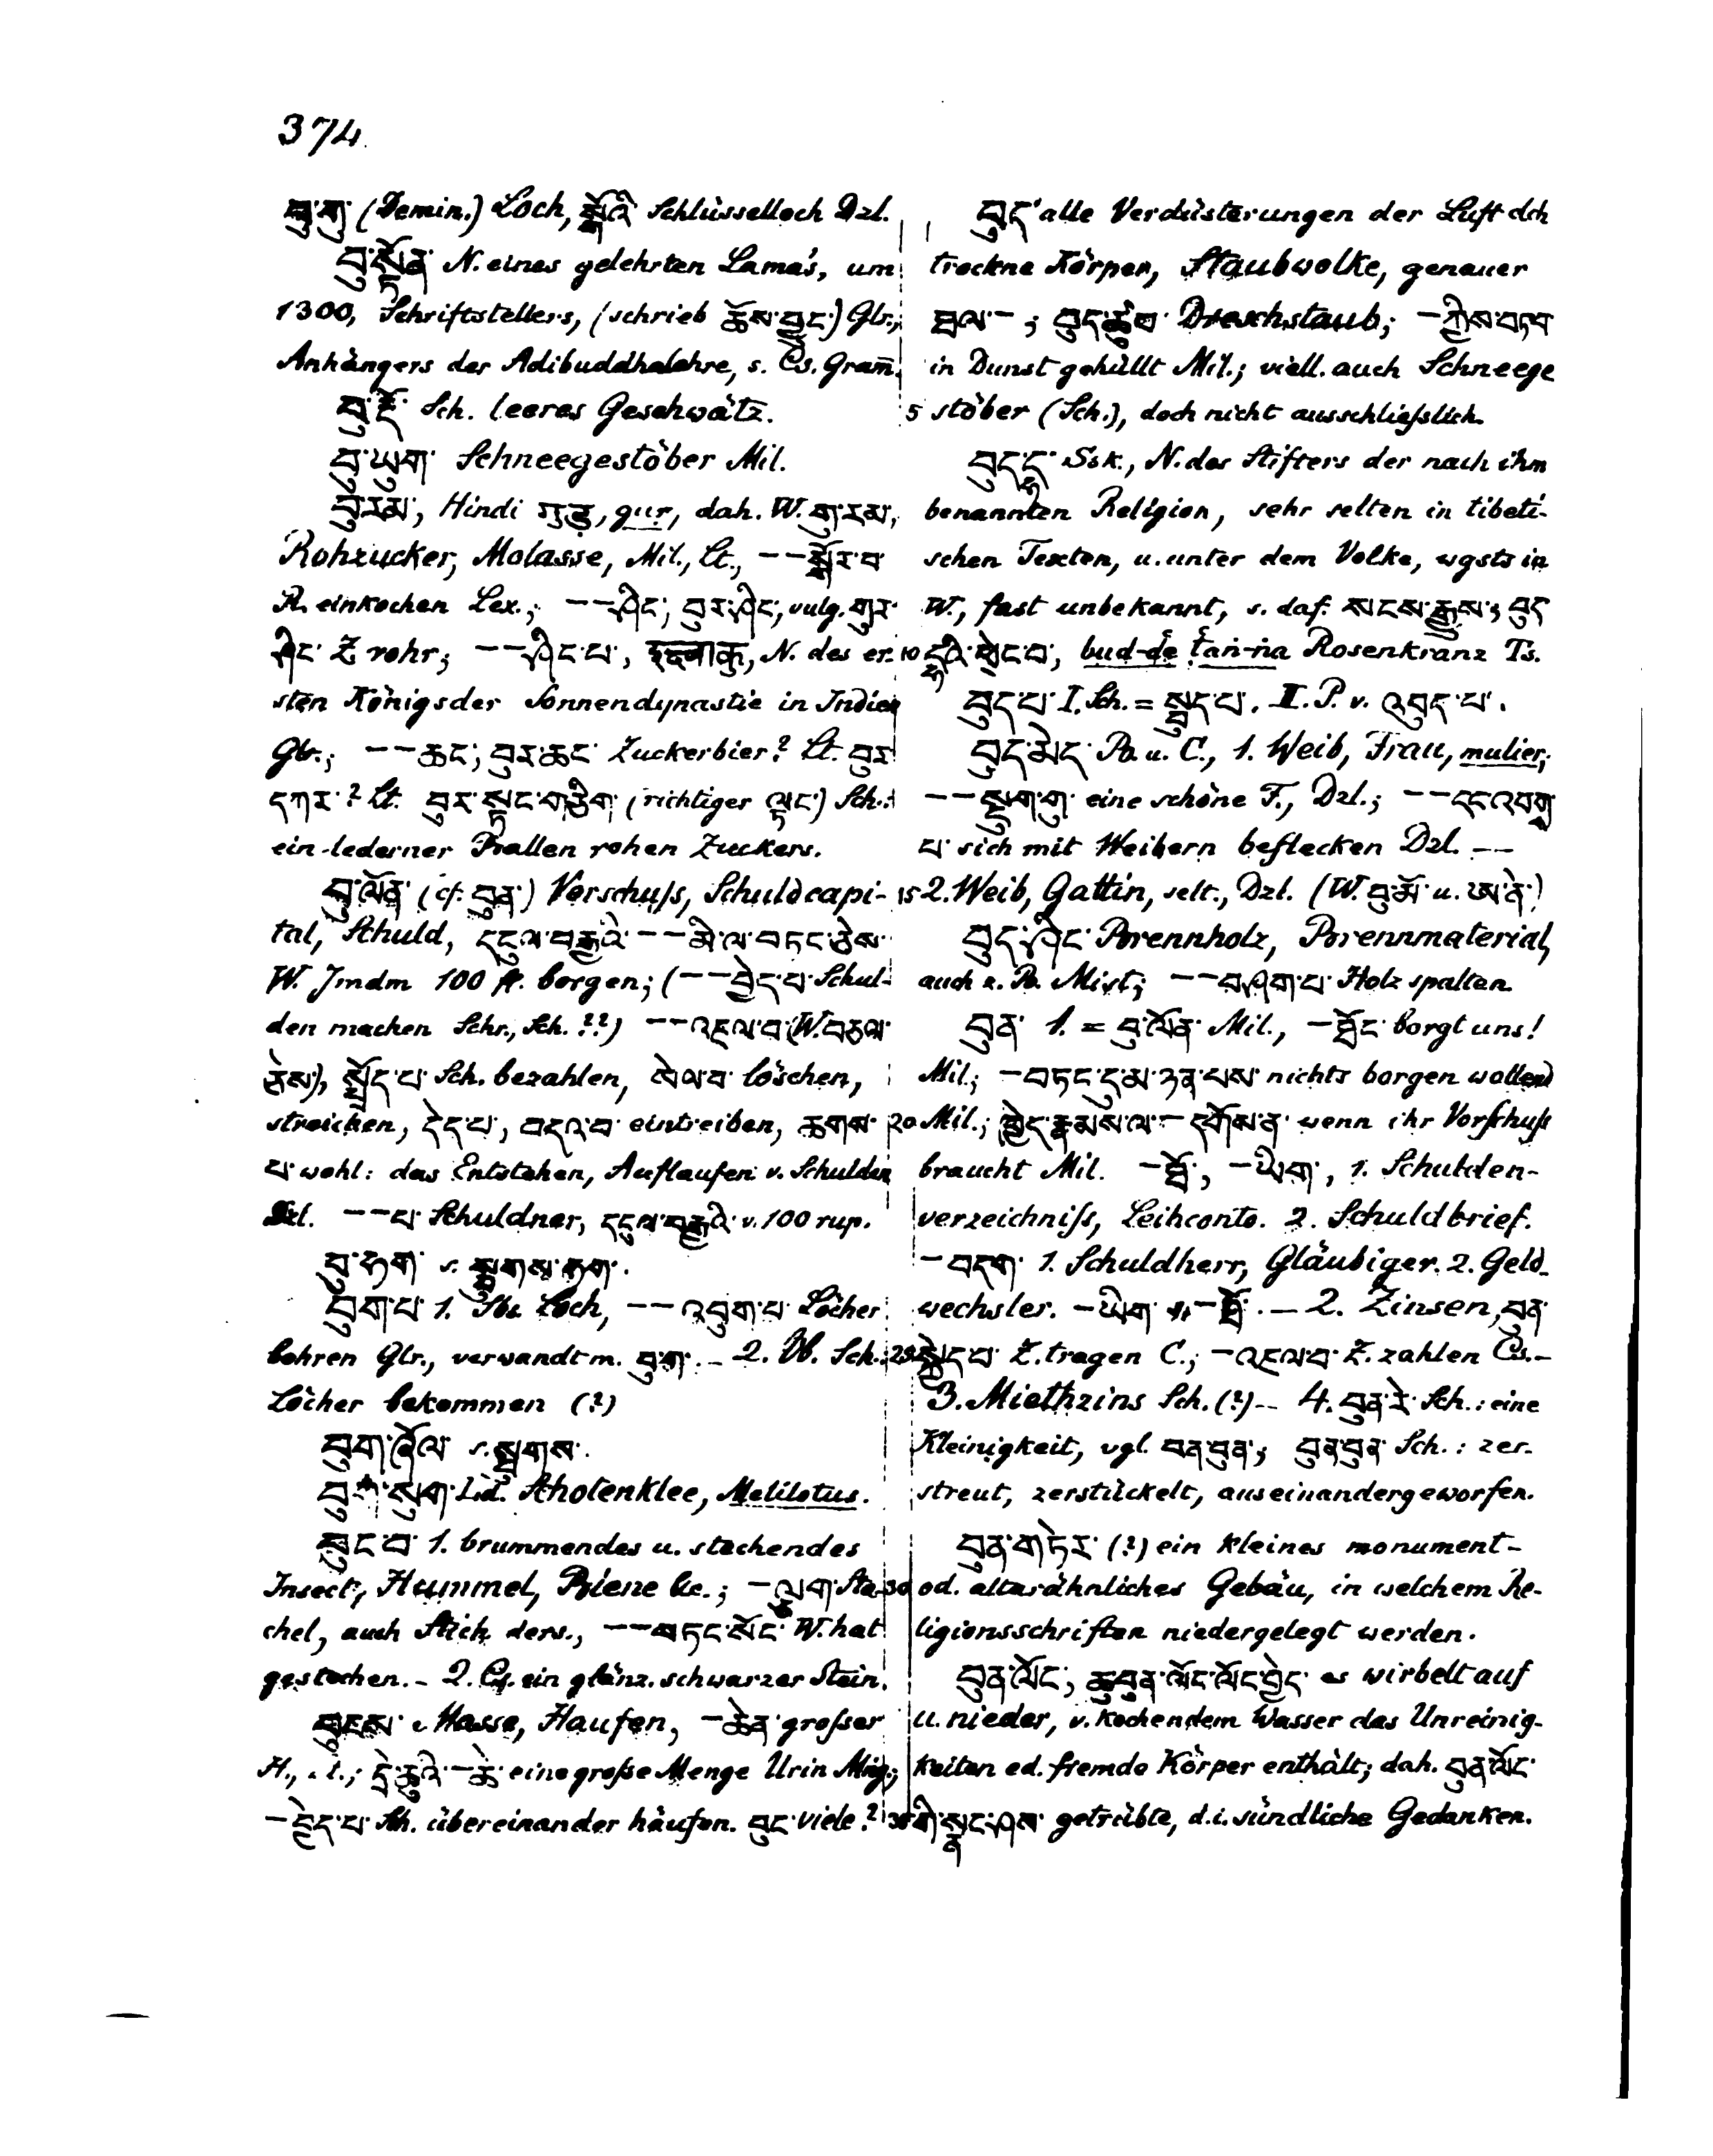 374
བུ་གུ་ (Demin.) Loch, Schlüsselloch Dzl.
བུ་སྟོན་ N. eines gelehrten Lama's, um
1300, Schriftstellers, (schrieb ཆོས་བྱུང་) Glr.,
Anhängers der Adibuddhalehre, s. Cs. Gram̄.
Sch. leeres Geschwätz.
བུ་ཡུག་ Schneegestöber Mil.
བུ་རམ་, Hindi गुड़, gur, dah. W. གུ་རམ་,
Rohzucker, Molasse, Mil., Lt., –– སྐོར་བ་
einkochen Lex.; –– ཤིང་, བུར་ཤིང་, vulg. གུར་
ཤིང་ Z rohr; –– ཤིང་པ་, N. des er-
sten Königs der Sonnendynastie in Indien
Glr.; –– ཆང་, བུར་ཆང་ Zuckerbier? Lt. བུར་
དཀར་? Lt. བུར་ལྟང་གཅིག་ (richtiger ལྟང་) Sch.:
ein lederner Ballen rohen Zuckers.
བུ་ལོན་ (cf. བུན་) Vorschuſs, Schuldcapi-
tal, Schuld, དངུལ་བརྒྱའི་ –– མི་ལ་བཏང་ཅེས་
W. Jmdm 100 fl. borgen; (–– བྱེད་པ་ Schul-
den machen Schr., Sch.??) –– འཇལ་བ་ (W. བཅལ་
ཅེས་), སྤྲོད་པ་ Sch. bezahlen, སེལ་བ་ löschen,
streichen, དེད་པ་, བདའ་བ་ eintreiben, ཆགས་
པ་ wohl: das Entstehen, Auflaufen v. Schulden
Dzl. –– པ་ Schuldner, དངུལ་བརྒྱའི་ v. 100 rup.
བུ་ཧག་ s. སྦུགས་ཧག་.
བུག་པ་ 1. Sbs. Loch, –– འབུག་པ་ Löcher
bohren Glr., verwandt m. བུ་ག་. – 2. Vb. Sch.:
Löcher bekommen (?)
བུག་ཞོལ་ s. སྦུགས་.
བུ་སུག་ Ld. Schotenklee, Melilotus.
བུང་བ་ 1. brummendes u. stechendes
Insect, Hummel, Biene &c.; – ལུག་ Sta-
chel, auch Stich ders., –– བཏང་སོང་ W. hat
gestochen. – 2. Cs. ein glänz. schwarzer Stein.
བུངས་ Masse, Haufen, – ཆེན་ groſser
H., དྲི་ཆུའི་ – ཆེ་ eine groſse Menge Urin Mng.;
– བྱེད་པ་ Sch. übereinander häufen. བུང་ viele?
བུད་ alle Verdüsterungen der Luft dch
trockne Körper, Staubwolke, genauer
ཐལ་ –; བུད་ Dreschstaub; – ཀྱིས་བཏབ་
in Dunst gehüllt Mil.; viell. auch Schneege
5 stöber (Sch.), doch nicht ausschlieſslich.
བུད་དྷ་ Ssk., N. des Stifters der nach ihm
benannten Religion, sehr selten in tibeti-
schen Texten, u. unter dem Volke, wgsts in
W., fast unbekannt, s. daf. སངས་རྒྱས་; བུད་
10 དྷའི་ཕྲེང་བ་, bud-de ṭaṅ-ṅa Rosenkranz Ts.
བུད་པ་ I. Sch. = སྦུད་པ་. II. P. v. འབུད་པ་.
བུད་མེད་ B. u. C., 1. Weib, Frau, mulier,
–– སྡུག་གུ་ eine schöne F., Dzl.; –– དང་འབག་
པ་ sich mit Weibern beflecken Dzl. ––
15 2. Weib, Gattin, selt., Dzl. (W. བུ་མོ་ u. ཨ་ནེ་)
བུད་ཤིང་ Brennholz, Brennmaterial,
auch z. B. Mist; –– བཤག་པ་ Holz spalten
བུན་ 1. = བུ་ལོན་ Mil., – ཐོང་ borgt uns!
Mil.; – བཏང་དུ་མ་ཉན་པས་ nichts borgen wollend
20 Mil.; ཁྱེད་རྣམས་ལ་ – དགོས་ན་ wenn ihr Vorschuſs
braucht Mil. – ཐོ་, – ཡིག་, 1. Schulden-
verzeichniſs, Leihconto. 2. Schuldbrief.
– བདག་ 1. Schuldherr, Gläubiger. 2. Geld-
wechsler. – ཡིག་ v. – ཐོ་. – 2. Zinsen, བུན་
25 སྐྱེད་པ་ Z. tragen C.; – འཇལ་བ་ Z. zahlen Cs. –
3. Miethzins Sch. (?) –– 4. བུན་རེ་ Sch.: eine
Kleinigkeit, vgl. བན་བུན་; བུན་བུན་ Sch.: zer-
streut, zerstückelt, auseinandergeworfen.
བུན་གཏེར་ (?) ein kleines monument-
30 od. altarähnliches Gebäu, in welchem Re-
ligionsschriften niedergelegt werden.
བུན་ལོང་, ཆུ་བུན་ལོང་ལོང་བྱེད་ es wirbelt auf
u. nieder, v. kochendem Wasser das Unreinig-
keiten od. fremde Körper enthält; dah. བུན་ལོང་
35 གི་སྣང་ཤས་ getrübte, d.i. sündliche Gedanken.